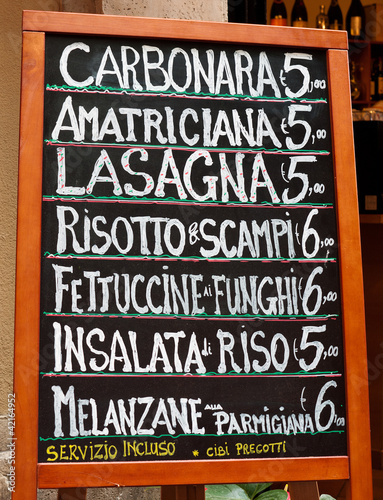 CARBONARA €5,00
AMATRICIANA €5,00
LASAGNA €5,00
RISOTTO & SCAMPI €6,00
FETTUCCINE AI FUNGHI €6,00
INSALATA di RISO €5,00
MELANZANE ALLA PARMIGIANA €6,00
SERVIZIO INCLUSO * CIBI PRECOTTI